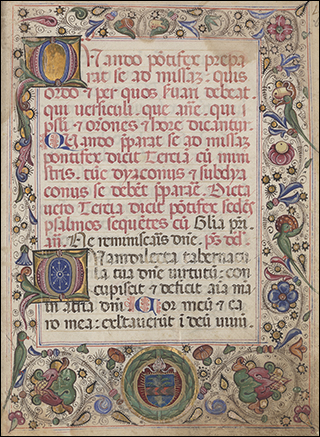 Quando põtifex prepa
rat se ad missaz. quis
ordo & per quos debeat
qui versiculi. que añe. qui
psli & orones & hore dicantur.
Quando pparat se ad missaz
pontifex dicit Tercia cũ mini
stris. tũc dyaconus & subdya
conus se debẽt pparare. Dicta
vero Tercia dicit põtifex sedẽs
psalmos sequẽtes cũ Glia pri
añ. Ne reminiscaris dñe. ps dd.
Quam dilecta tabernacu
la tua dñe virtutũ: con
cupiscit & deficit aĩa ma
in atria dñi Cor meũ & ca
ro mea: exltaverũt ĩ deũ vivũ.